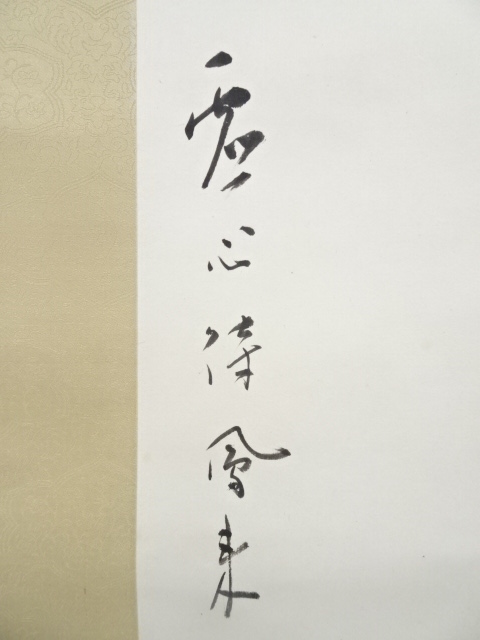 虚心待鳳来